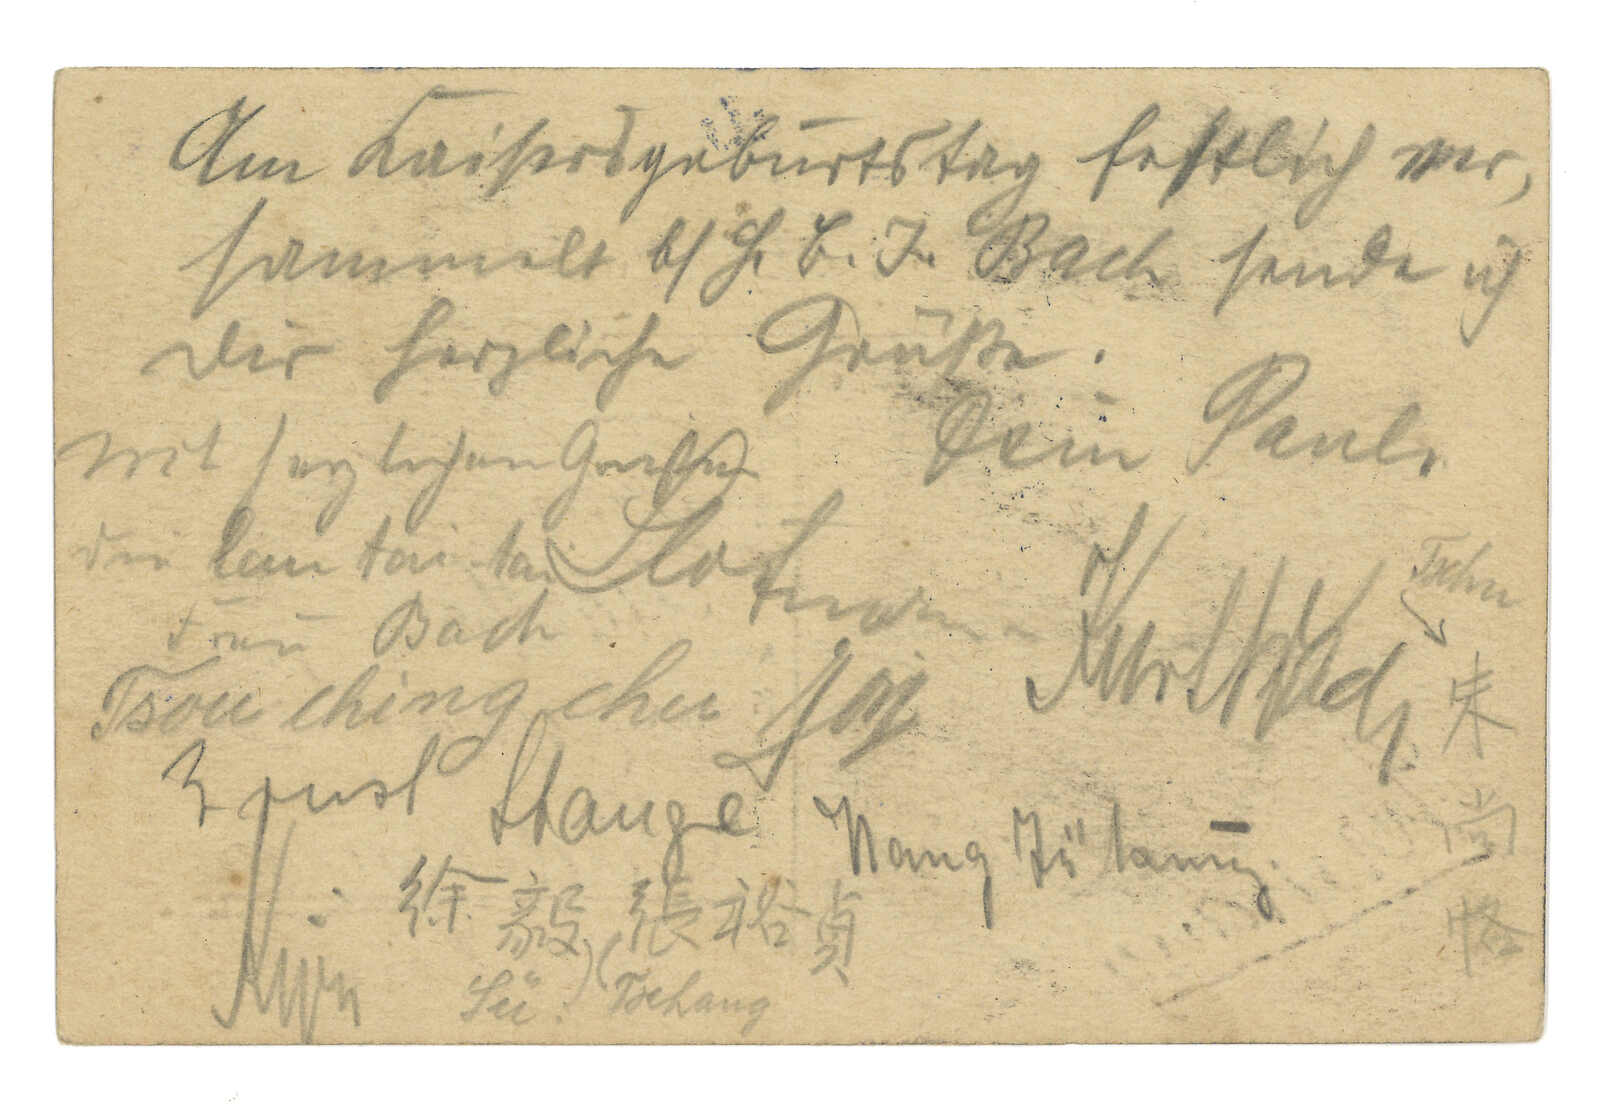 Am Kaisersgeburtstag festlich ver-
sammelt b/ H. L. Bach sende ich
Dir herzliche Grüße.
Dein Paul.
Mit herzlichen Grüßen
Die Lau tai-tai
Frau Bach
Tsou ching chu
Ernst Stange
Kurt
Wang
徐毅 張裕貞
Sü. Tschang
朱尚